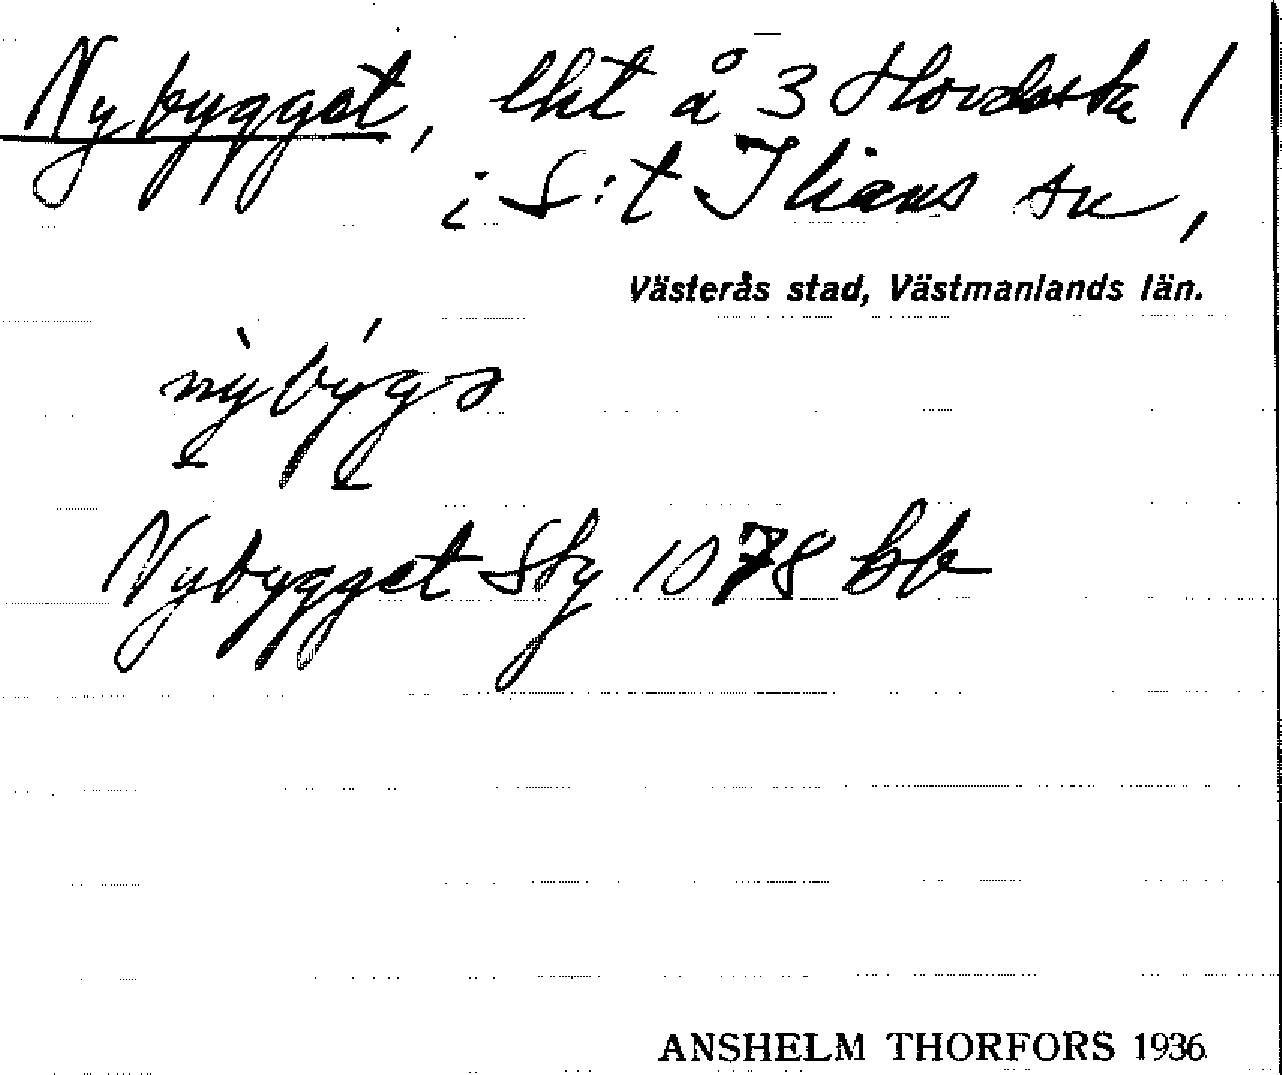 Nybygget, lht å 3 Hovdesta /
i S:t Ilians sn,
Västerås stad, Västmanlands län.
Nybygget Sty 1078 bb
ANSHELM THORFORS 1936